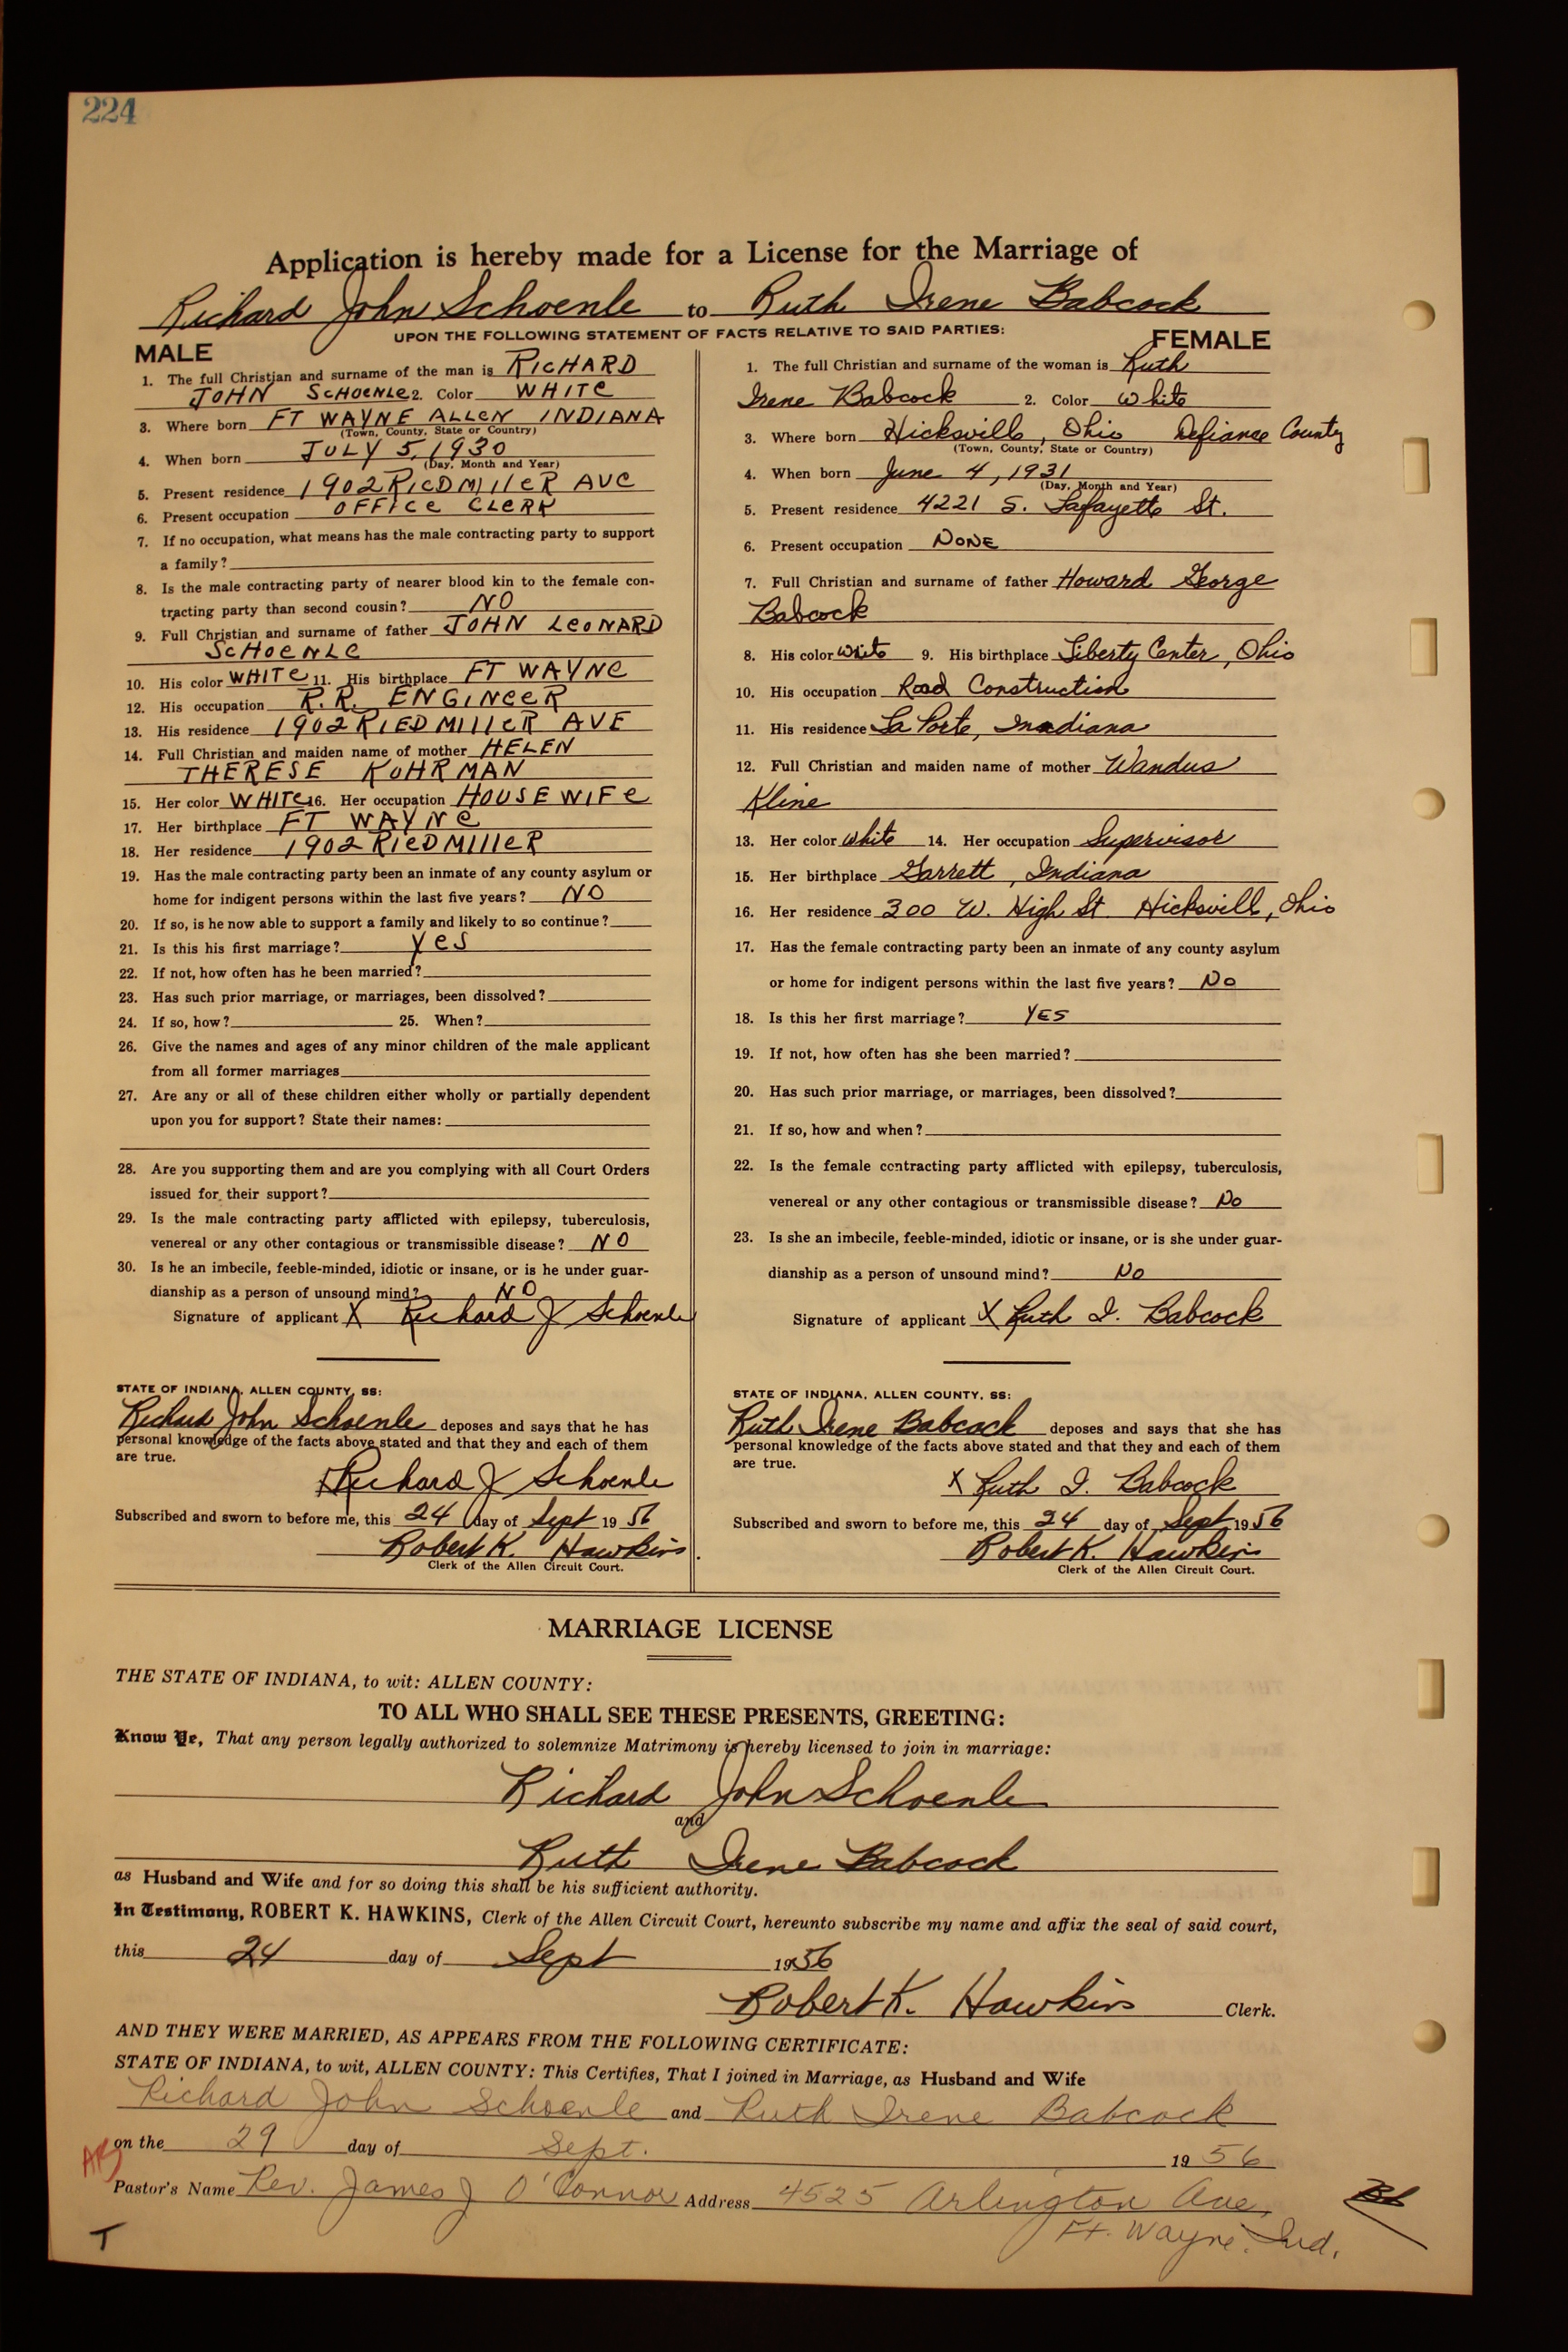 224
Application is hereby made for a License for the Marriage of
Richard John Schoenle to Ruth Irene Babcock
UPON THE FOLLOWING STATEMENT OF FACTS RELATIVE TO SAID PARTIES:
MALE
1. The full Christian and surname of the man is RICHARD
JOHN SCHOENLE 2. Color WHITE
3. Where born FT WAYNE ALLEN INDIANA
(Town, County, State or Country)
4. When born JULY 5, 1930
(Day, Month and Year)
5. Present residence 1902 RIEDMILLER AVE
6. Present occupation OFFICE CLERK
7. If no occupation, what means has the male contracting party to support
a family?
8. Is the male contracting party of nearer blood kin to the female con-
tracting party than second cousin? NO
9. Full Christian and surname of father JOHN LEONARD
SCHOENLE
10. His color WHITE 11. His birthplace FT WAYNE
12. His occupation R.R. ENGINEER
13. His residence 1902 RIEDMILLER AVE
14. Full Christian and maiden name of mother HELEN
THERESE KOHRMAN
15. Her color WHITE 16. Her occupation HOUSEWIFE
17. Her birthplace FT WAYNE
18. Her residence 1902 RIEDMILLER
19. Has the male contracting party been an inmate of any county asylum or
home for indigent persons within the last five years? NO
20. If so, is he now able to support a family and likely to so continue?
21. Is this his first marriage? Yes
22. If not, how often has he been married?
23. Has such prior marriage, or marriages, been dissolved?
24. If so, how? 25. When?
26. Give the names and ages of any minor children of the male applicant
from all former marriages
27. Are any or all of these children either wholly or partially dependent
upon you for support? State their names:
28. Are you supporting them and are you complying with all Court Orders
issued for their support?
29. Is the male contracting party afflicted with epilepsy, tuberculosis,
venereal or any other contagious or transmissible disease? NO
30. Is he an imbecile, feeble-minded, idiotic or insane, or is he under guar-
dianship as a person of unsound mind? NO
Signature of applicant X Richard J Schoenle
STATE OF INDIANA, ALLEN COUNTY, SS:
Richard John Schoenle deposes and says that he has
personal knowledge of the facts above stated and that they and each of them
are true.
X Richard J Schoenle
Subscribed and sworn to before me, this 24 day of Sept 19 56
Robert K. Hawkins
Clerk of the Allen Circuit Court.
FEMALE
1. The full Christian and surname of the woman is Ruth
Irene Babcock 2. Color White
3. Where born Hicksville, Ohio Defiance County
(Town, County, State or Country)
4. When born June 4, 1931
(Day, Month and Year)
5. Present residence 4221 S. Lafayette St.
6. Present occupation NONE
7. Full Christian and surname of father Howard George
Babcock
8. His color White 9. His birthplace Liberty Center, Ohio
10. His occupation Road Construction
11. His residence La Porte, Indiana
12. Full Christian and maiden name of mother Wandus
Kline
13. Her color White 14. Her occupation Supervisor
15. Her birthplace Garrett, Indiana
16. Her residence 300 W. High St Hicksville, Ohio
17. Has the female contracting party been an inmate of any county asylum
or home for indigent persons within the last five years? No
18. Is this her first marriage? YES
19. If not, how often has she been married?
20. Has such prior marriage, or marriages, been dissolved?
21. If so, how and when?
22. Is the female contracting party afflicted with epilepsy, tuberculosis,
venereal or any other contagious or transmissible disease? No
23. Is she an imbecile, feeble-minded, idiotic or insane, or is she under guar-
dianship as a person of unsound mind? No
Signature of applicant X Ruth I. Babcock
STATE OF INDIANA, ALLEN COUNTY, SS:
Ruth Irene Babcock deposes and says that she has
personal knowledge of the facts above stated and that they and each of them
are true.
X Ruth I. Babcock
Subscribed and sworn to before me, this 24 day of Sept 19 56
Robert K. Hawkins
Clerk of the Allen Circuit Court.
MARRIAGE LICENSE
THE STATE OF INDIANA, to wit: ALLEN COUNTY:
TO ALL WHO SHALL SEE THESE PRESENTS, GREETING:
Know Ye, That any person legally authorized to solemnize Matrimony is hereby licensed to join in marriage:
Richard John Schoenle
and
Ruth Irene Babcock
as Husband and Wife and for so doing this shall be his sufficient authority.
In Testimony, ROBERT K. HAWKINS, Clerk of the Allen Circuit Court, hereunto subscribe my name and affix the seal of said court,
this 24 day of Sept 1956
Robert K. Hawkins Clerk.
AND THEY WERE MARRIED, AS APPEARS FROM THE FOLLOWING CERTIFICATE:
STATE OF INDIANA, to wit, ALLEN COUNTY: This Certifies, That I joined in Marriage, as Husband and Wife
Richard John Schoenle and Ruth Irene Babcock
on the 29 day of Sept. 19 56
Pastor's Name Rev. James J O'Connor Address 4525 Arlington Ave,
Ft. Wayne, Ind.
T